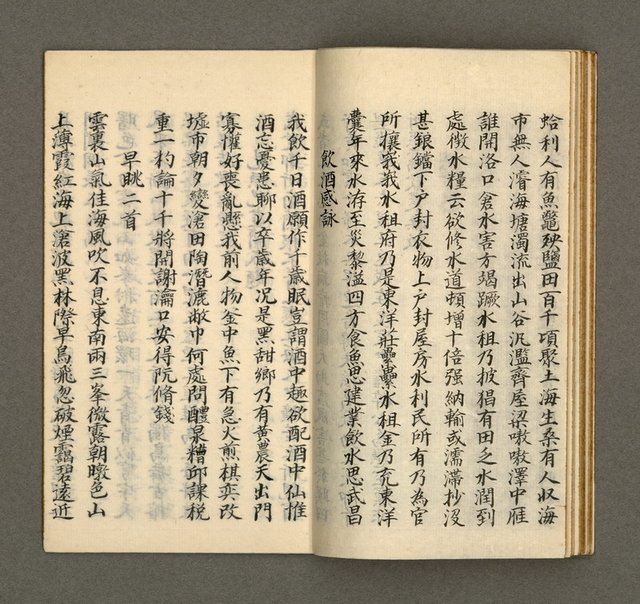 蛤利人有魚鼈殃鹽田百千項聚土海生桑有人収海
市無人濬海塘濁流出山谷汎濫齊屋梁嗷嗷澤中雁
誰開洛口倉水害方竭蹶水租乃披猖有田乏水潤到
處徴水糧云欲修水道頓增十倍強納輸或濡滯抄沒
甚銀鐺下戶封衣物上戶封屋房水利民所有乃為官
所攘我我水租府乃是東洋莊纍纍水租金乃充東洋
囊年來水洊至災黎溢四方食魚思建業飲水思武昌
飲酒感詠
我飲千日酒願作千歲眠豈謂酒中趣欲配酒中仙惟
酒忘憂患聊以卒歲年况是黑甜鄉乃有黄農天出門
寡懽好喪亂懸我前人物釜中魚下有急火煎棋奕改
墟市朝夕變滄田陶潛漉敝巾何處問醴泉糟邱課税
重一杓論十千將開謝瀹口安得阮脩錢
早眺二首
雲裏山氣佳海風吹不息東南兩三峯微露朝暾色山
上薄霞紅海上滄波黑林際早鳥飛忽破煙靄碧遠近